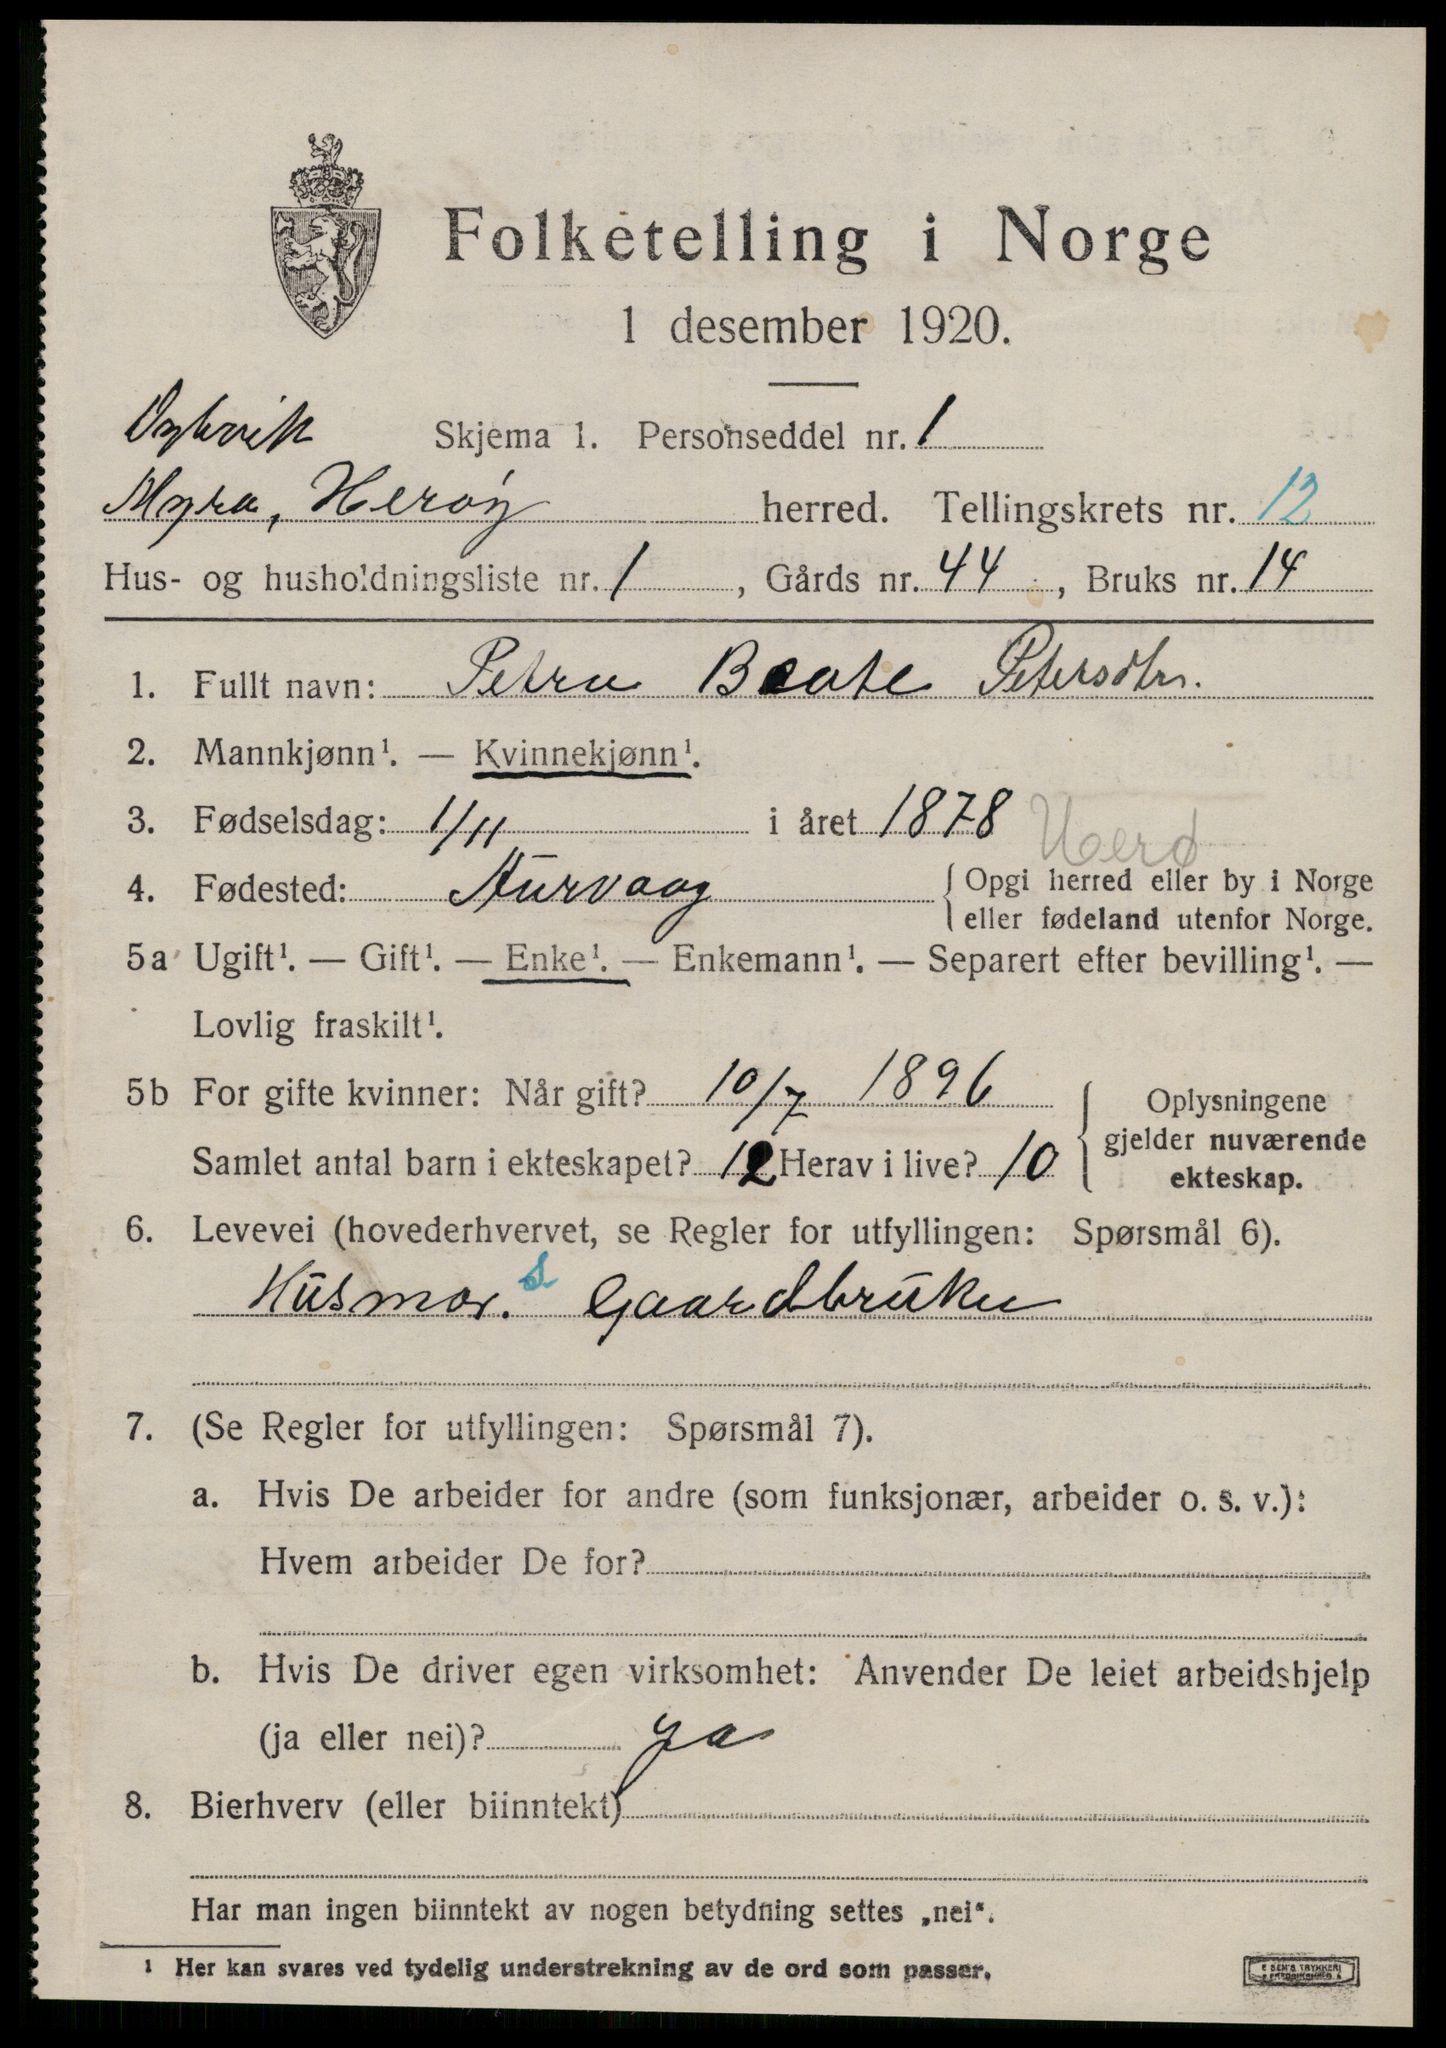 Folketelling i Norge
1 desember 1920.
Skjema 1. Personseddel nr. 1
Myra, Herøy herred. Tellingskrets nr. 12
Hus- og husholdningsliste nr. 1, Gårds nr. 44, Bruks nr. 14
1. Fullt navn: Petra Beate Petersdtr.
2. Mannkjønn¹. — Kvinnekjønn¹.
3. Fødselsdag: 1/11 i året 1878
Herø
4. Fødested: Aurvaag {Opgi herred eller by i Norge
eller fødeland utenfor Norge.
5a Ugift¹. — Gift¹. — Enke¹. — Enkemann¹. — Separert efter bevilling¹. —
Lovlig fraskilt¹.
5b For gifte kvinner: Når gift? 10/7 1896
Samlet antal barn i ekteskapet? 12 Herav i live? 10
Oplysningene
gjelder nuværende
ekteskap.
6. Levevei (hovederhvervet, se Regler for utfyllingen: Spørsmål 6).
Husmor. s Gaardbruker
7. (Se Regler for utfyllingen: Spørsmål 7).
a. Hvis De arbeider for andre (som funksjonær, arbeider o. s. v.):
Hvem arbeider De for?
b. Hvis De driver egen virksomhet: Anvender De leiet arbeidshjelp
(ja eller nei)? ja
8. Bierhverv (eller biinntekt)
Har man ingen biinntekt av nogen betydning settes „nei“.
¹ Her kan svares ved tydelig understrekning av de ord som passer.